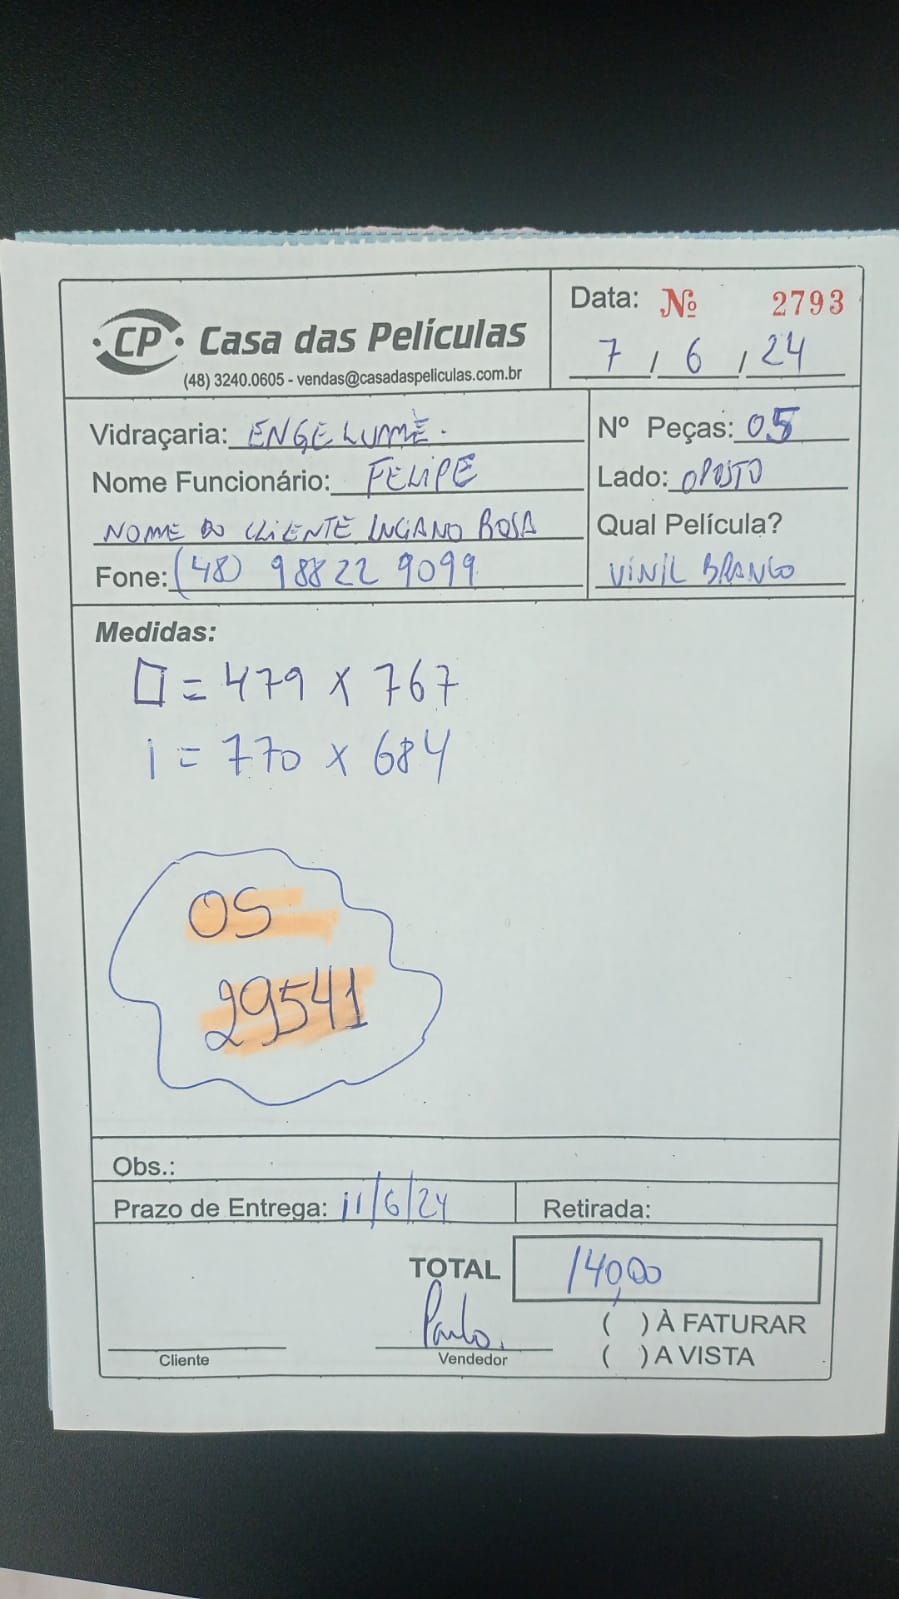 CP Casa das Películas
(48) 3240.0605 - vendas@casadaspeliculas.com.br
Data: Nº 2793
7 / 6 / 24
Vidraçaria: ENGELUME.
Nome Funcionário: FELIPE
NOME DO CLIENTE LUCIANO ROSA
Fone: (48) 98822 9099
Nº Peças: 05
Lado: OPOSTO
Qual Película?
VINIL BRANCO
Medidas:
= 479 x 767
1 = 770 x 684
OS
29541
Obs.:
Prazo de Entrega: 11/6/24
Retirada:
TOTAL 140,00
Paulo.
Cliente
Vendedor
( ) À FATURAR
( ) A VISTA